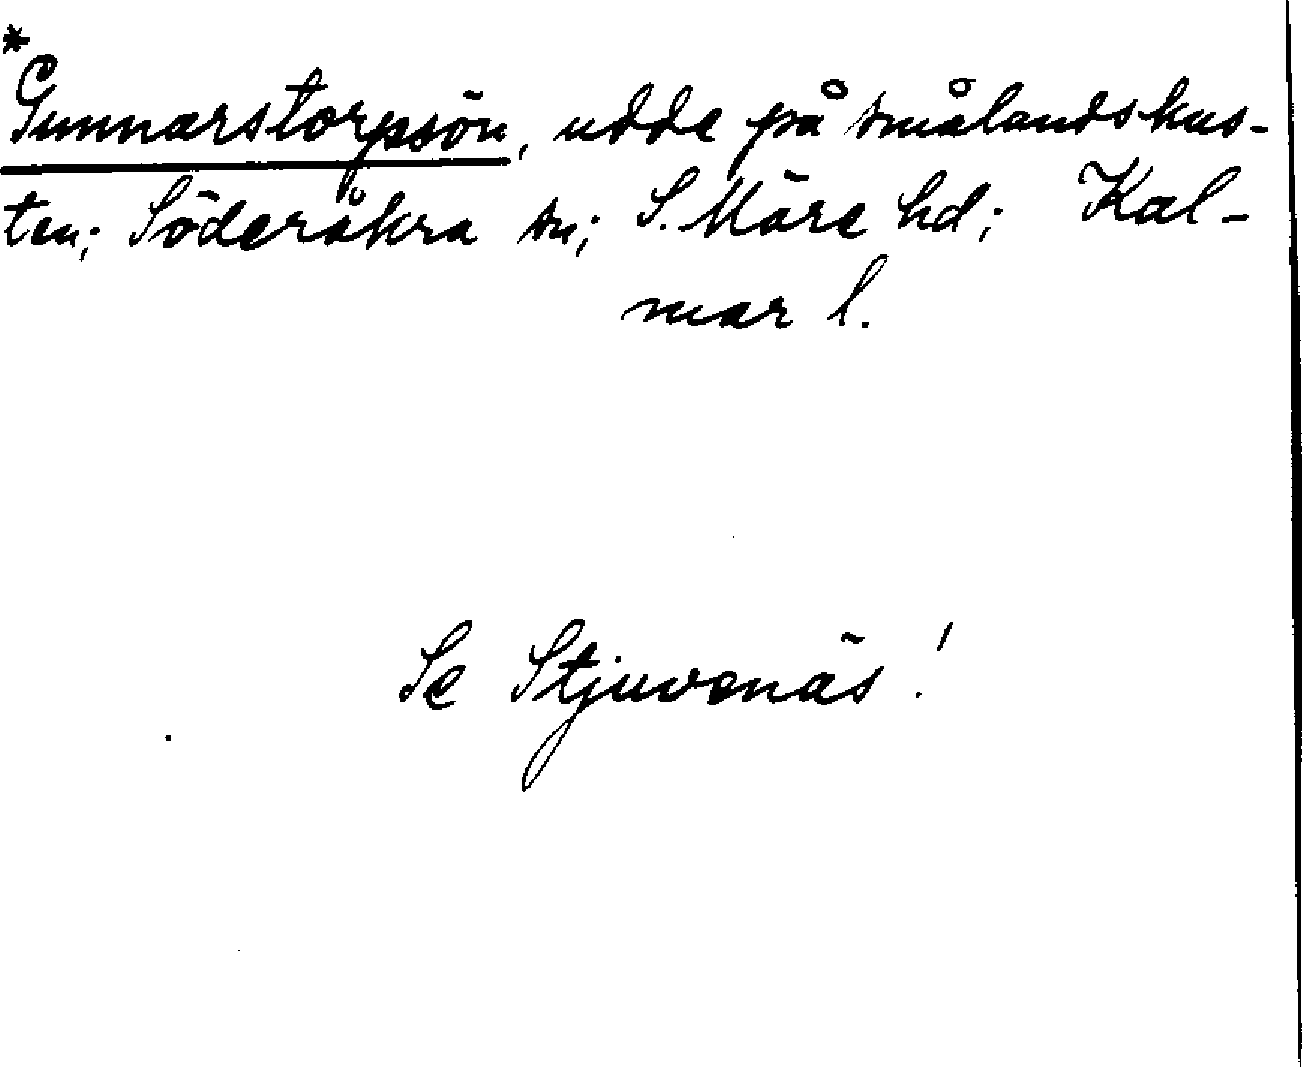 *
Gunnarstorpsön, udde på smålandskus-
ten; Söderåkra sn; S. Möre hd; Kal-
mar l.
Se Stjuvenäs!